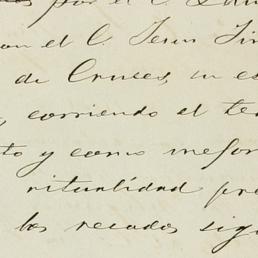 por el C.
con el C. Jesus
de Cruces, en es
corriendo el te
to y como mejor
ritualidad pre
los recados sig